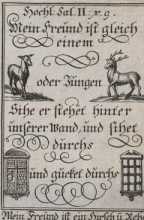 Hochl. Sal. II. v. 9.
Mein Freund ist gleich
einem
oder Jungen
Sihe er stehet hinter
unserer Wand, und sihet
durchs
und gucket durchs
Mein Freund ist ein Hirsch u. Rehe